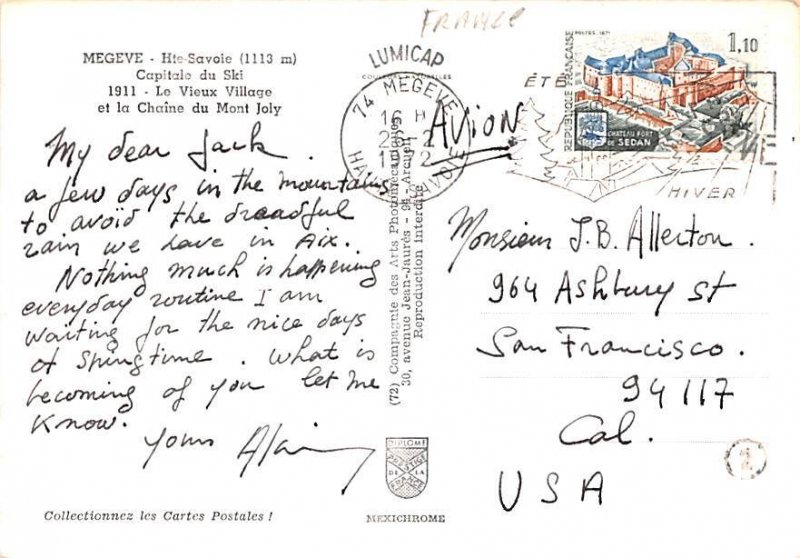 FRANCE
MEGEVE - Hte-Savoie (1113 m)
Capitale du Ski
1911 - Le Vieux Village
et la Chaîne du Mont Joly
My dear Jack.
a few days in the mountains
to avoid the dreadful
rain we have in Aix.
Nothing much is happening
everyday routine I am
waiting for the nice days
of Springtime. What is
becoming of you let me
know.
yours Alain
Collectionnez les Cartes Postales !
LUMICAP
COULEURS NATURELLES
74 MEGEVE
16 H
AVION
ÉTÉ
HIVER
REPUBLIQUE FRANÇAISE
POSTES 1971
1,10
CHATEAU FORT
DE SEDAN
(72) Compagnie des Arts Photomécaniques
30, avenue Jean-Jaurès - 94 - Arcueil
Reproduction interdite
Monsieur J.B. Allerton.
964 Ashbury st
San Francisco.
94117
Cal.
USA
2
DIPLOME
PRESTIGE
DE LA
FRANCE
MEXICHROME